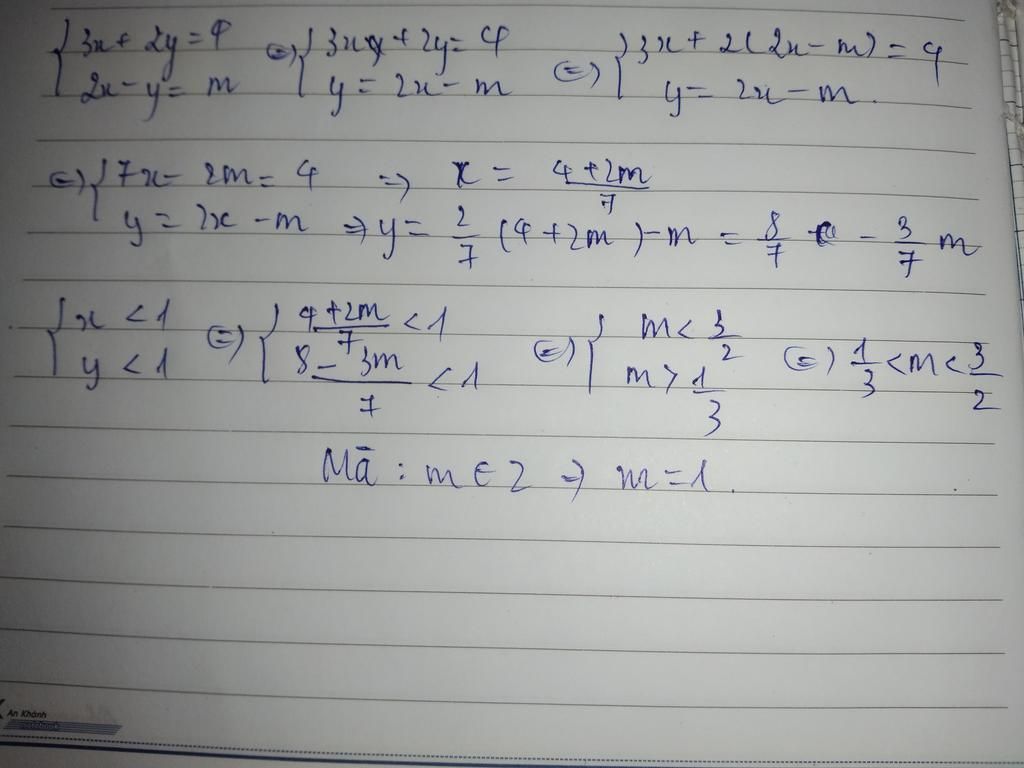 {3x + 2y = 4 {2x - y = m ⇔ {3x + 2y = 4 {y = 2x - m ⇔ {3x + 2(2x - m) = 4 {y = 2x - m.
⇔ {7x - 2m = 4 ⇒ x = (4 + 2m)/7
{y = 2x - m ⇒ y = 2/7 (4 + 2m) - m = 8/7 - 3/7 m
{x < 1 {y < 1 ⇔ {(4 + 2m)/7 < 1 {(8 - 3m)/7 < 1 ⇔ {m < 3/2 {m > 1/3 ⇔ 1/3 < m < 3/2
Mā : m ∈ Z ⇒ m = 1.
An Khánh